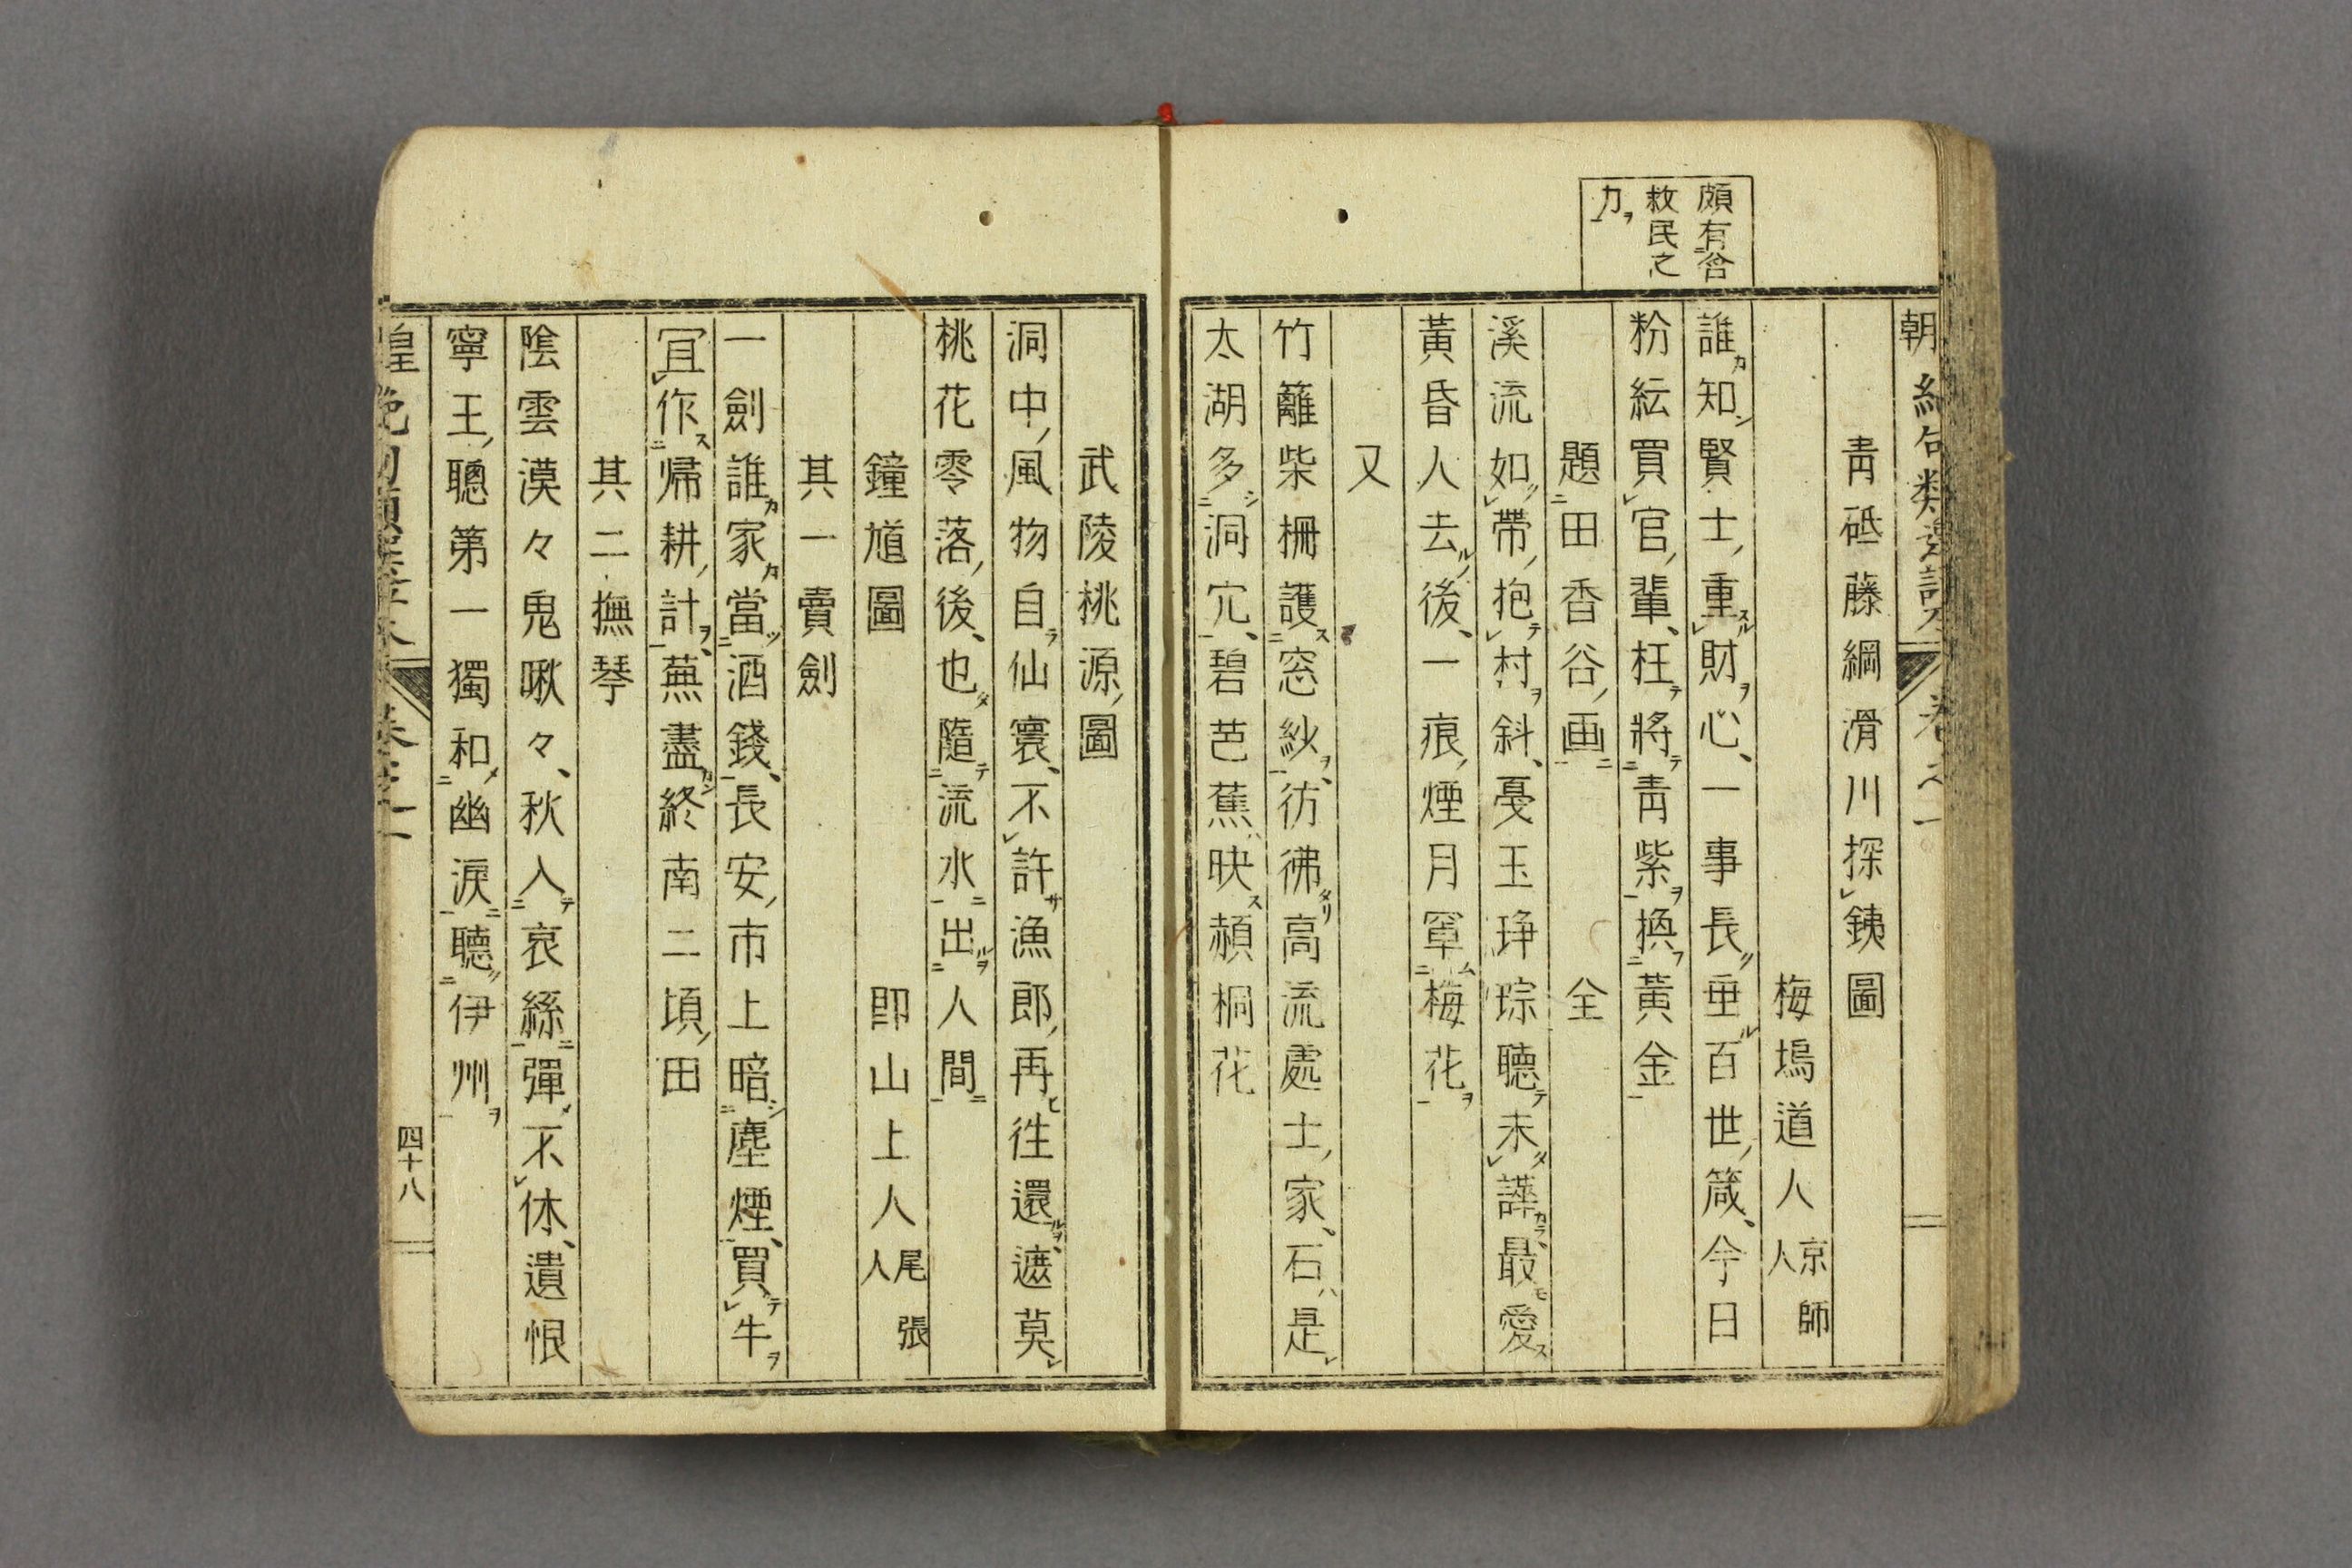 頗有合
救民之
力
朝絶句類選評本 卷之一
靑砥藤綱滑川探銭圖
梅塢道人 京師人
誰知賢士重財心、一事長垂百世箴、今日
粉紜買官輩、枉將靑紫換黃金
題田香谷画 仝
溪流如帶抱村斜、戞玉琤琮聽未譁、最愛
黃昏人去後、一痕煙月罩梅花
又
竹籬柴柵護窓紗、彷彿高流處士家、石是
太湖多洞穴、碧芭蕉映頳桐花
武陵桃源圖
洞中風物自仙寰、不許漁郎再徃還、遮莫
桃花零落後、也隨流水出人間
鐘馗圖 即山上人 尾張人
其一賣劍
一劍誰家當酒錢、長安市上暗塵煙、買牛
冝作帰耕計、蕪盡終南二頃田
其二撫琴
陰雲漠々鬼啾々、秋入哀絲彈不休、遺恨
寧王聰第一獨和幽淚聽伊州
四十八